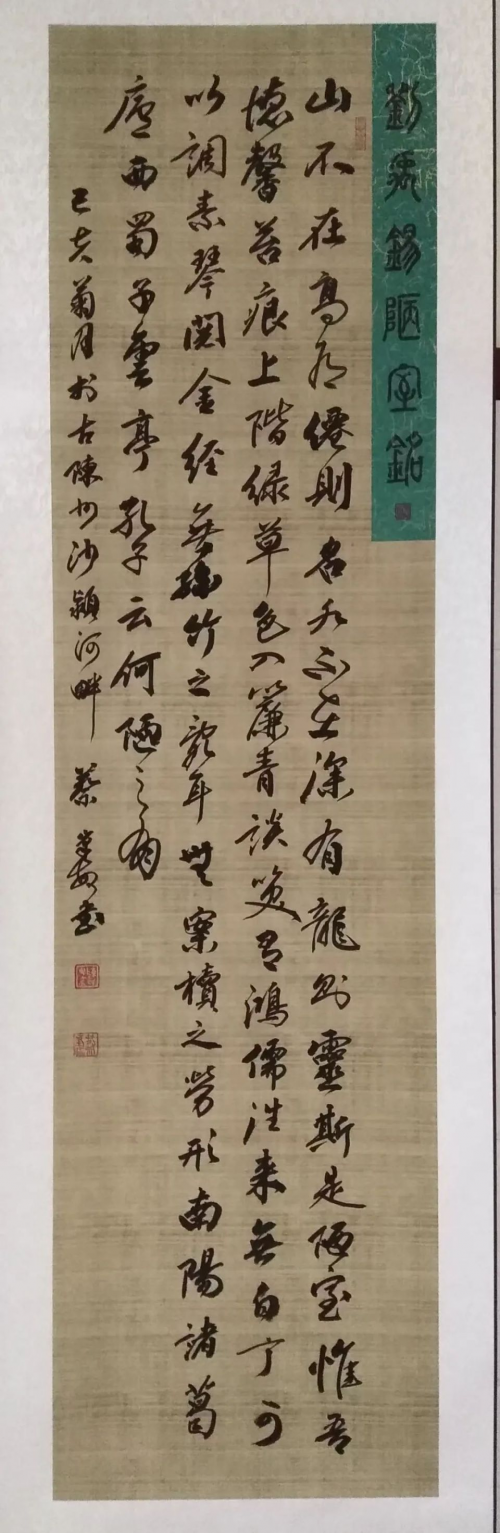 劉禹錫陋室銘
山不在高有僊則名水不在深有龍則靈斯是陋室惟吾
德馨苔痕上階緑草色入簾青談笑有鴻儒往来無白丁可
以調素琴閲金经無絲竹之亂耳無案牘之勞形南陽諸葛
廬西蜀子雲亭孔子云何陋之有
己亥菊月於古陳州沙潁河畔 蔡